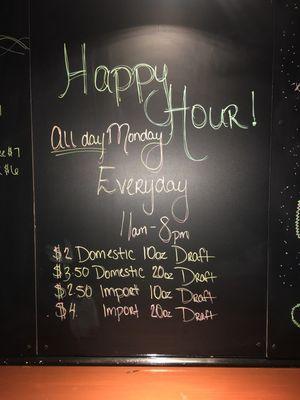 Happy
Hour!
All day Monday
Everyday
11am-8pm
$2 Domestic 10oz Draft
$3.50 Domestic 20oz Draft
$2.50 Import 10oz Draft
$4 Import 20oz Draft
$7
$6